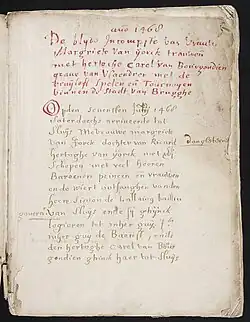 anno 1468
De blyde Incompste van vrauwe
Margriete van yorck trauwen
met hertoghe Carel van Bourgondien
grave van Vlaendren met de
Spelen en Tournoyen
binnen de Stadt van Brugghe
Op den sevensten July 1468
Saterdaechs arriveerde tot
Sluys Mevrauwe margriete
van yorck dochter van Ricard
hertoghe van yorck met
schepen met veel heeren
Baroenen princen en vrauwen
ende wiert ontfanghen van den
heere Simon de Lallaing bailiu
van Sluys ende sy ghijnck
logieren tot
guy de Baenst ende
den hertoghe Carel van Bour
gondien ghinck haer tot Sluys